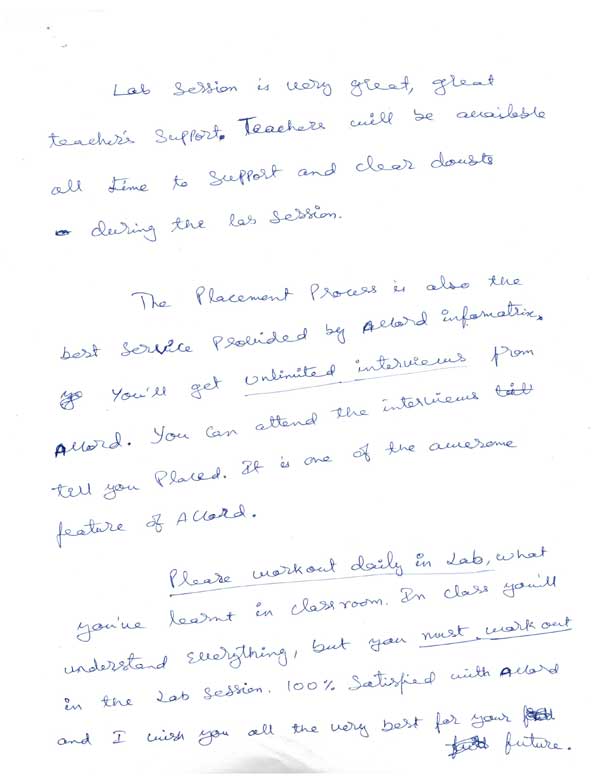 Lab Session is very great, great
teacher's Support. Teachers will be available
all time to support and clear doubts
during the lab session.
The Placement Process is also the
best Service Provided by Accord infomatrix.
You'll get unlimited interviews from
Accord. You can attend the interviews
tell you Placed. It is one of the awesome
feature of Accord.
Please workout daily in Lab, what
you've learnt in classroom. In class you'll
understand everything, but you must work out
in the Lab session. 100% Satisfied with Accord
and I wish you all the very best for your
future.